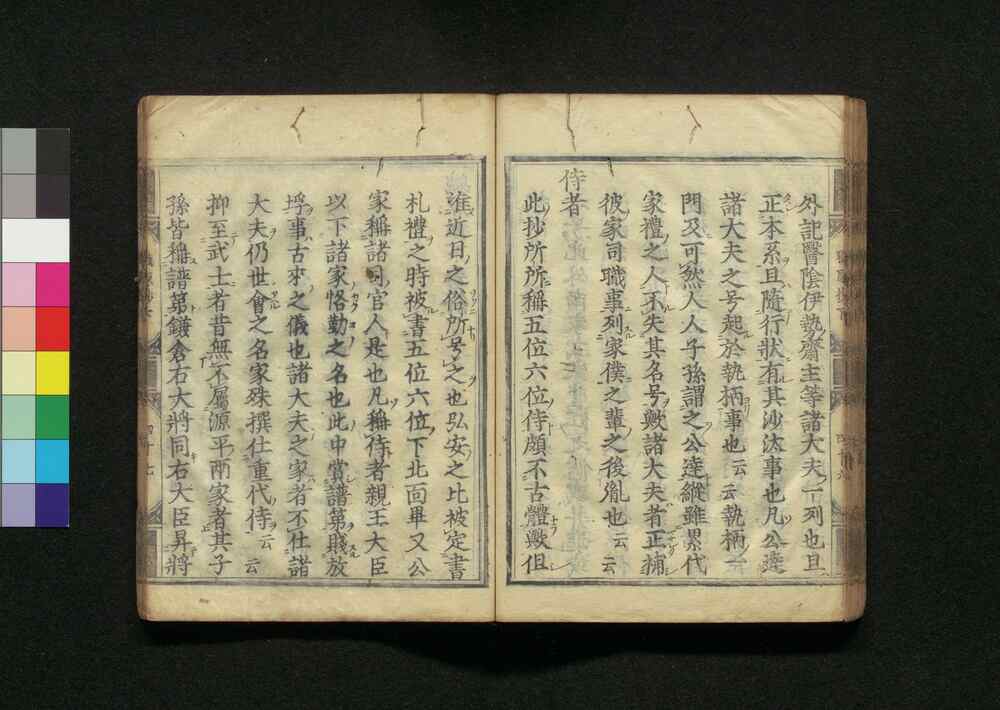 外記醫陰伊勢齋主等諸大夫一列也且
正本系且隨行狀有其沙汰事也凡公達
諸大夫之号起於執柄事也云云執柄一
門又可然人人子孫謂之公達縱雖累代
家禮之人不失其名号歟諸大夫者正補
彼家司職事列家僕之輩之後胤也云云
侍者
此抄所所稱五位六位侍頗不古體歟但
准近日之俗所号之也弘安之比被定書
札禮之時被書五位六位下北面畢又公
家稱諸司官人是也凡稱侍者親王大臣
以下諸家恪勤之名也此中賞譜第賤放
埒事古来之儀也諸大夫之家者不仕諸
大夫仍世會之名家殊撰仕重代侍云云
抑至武士者昔無不属源平兩家者其子
孫皆稱譜第鎌倉右大將同右大臣昇將